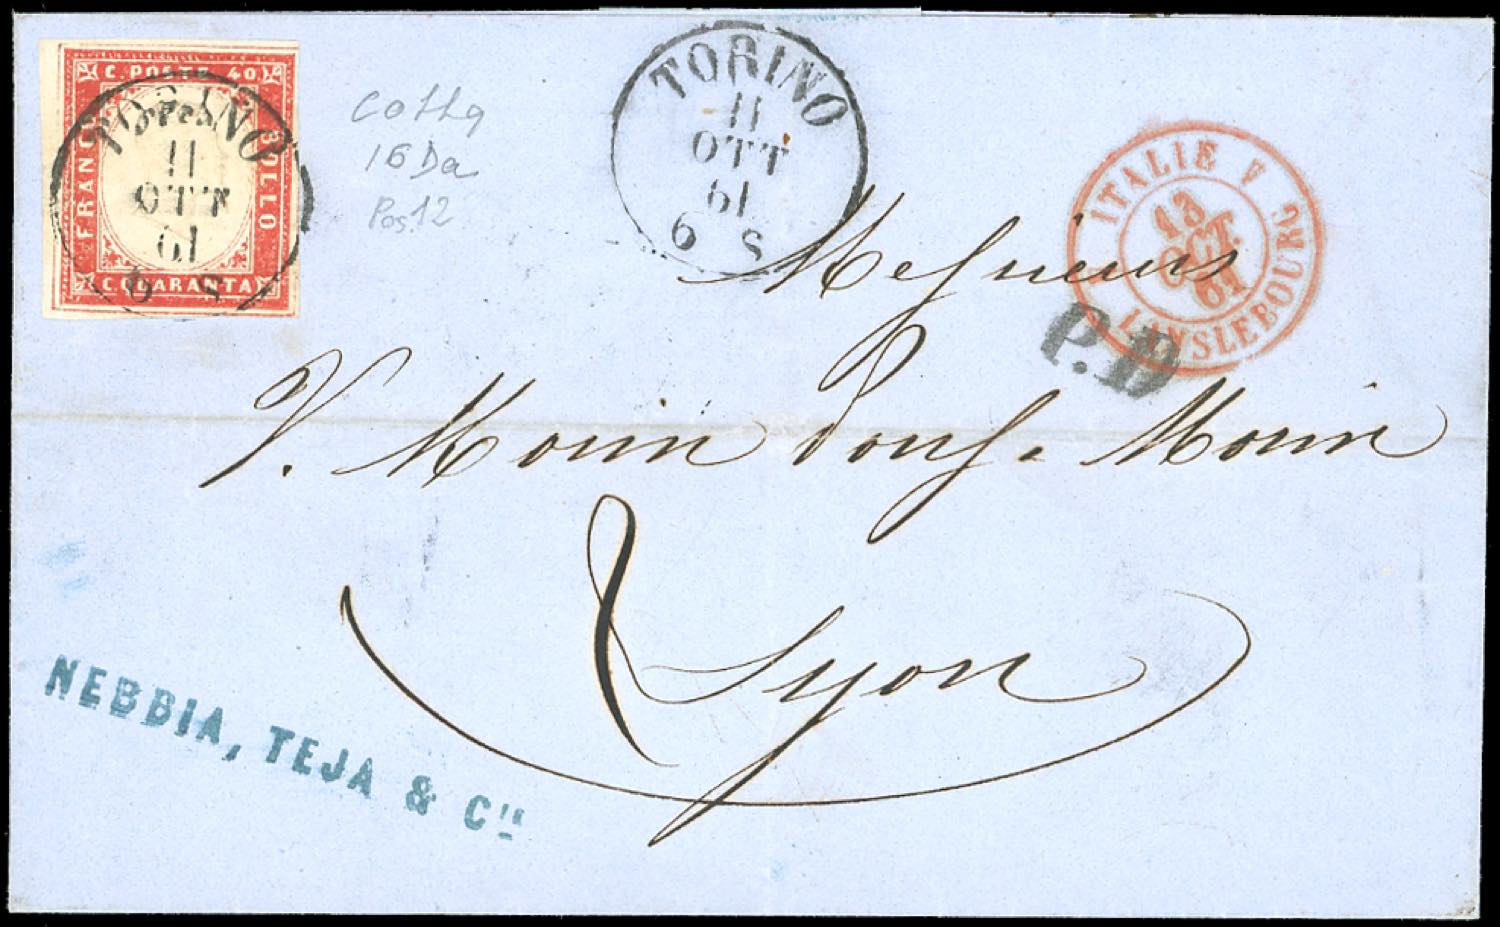 C. POSTE 40.
FRANCO
BOLLO
C. QUARANTA
TORINO
11
OTT
61
6 S
16 Da
Pos. 12
TORINO
11
OTT
61
6 S
ITALIE V
13
OCT.
61
LANSLEBOURG
P.D
V. Morin Morin
Lyon
NEBBIA, TEJA & Cia